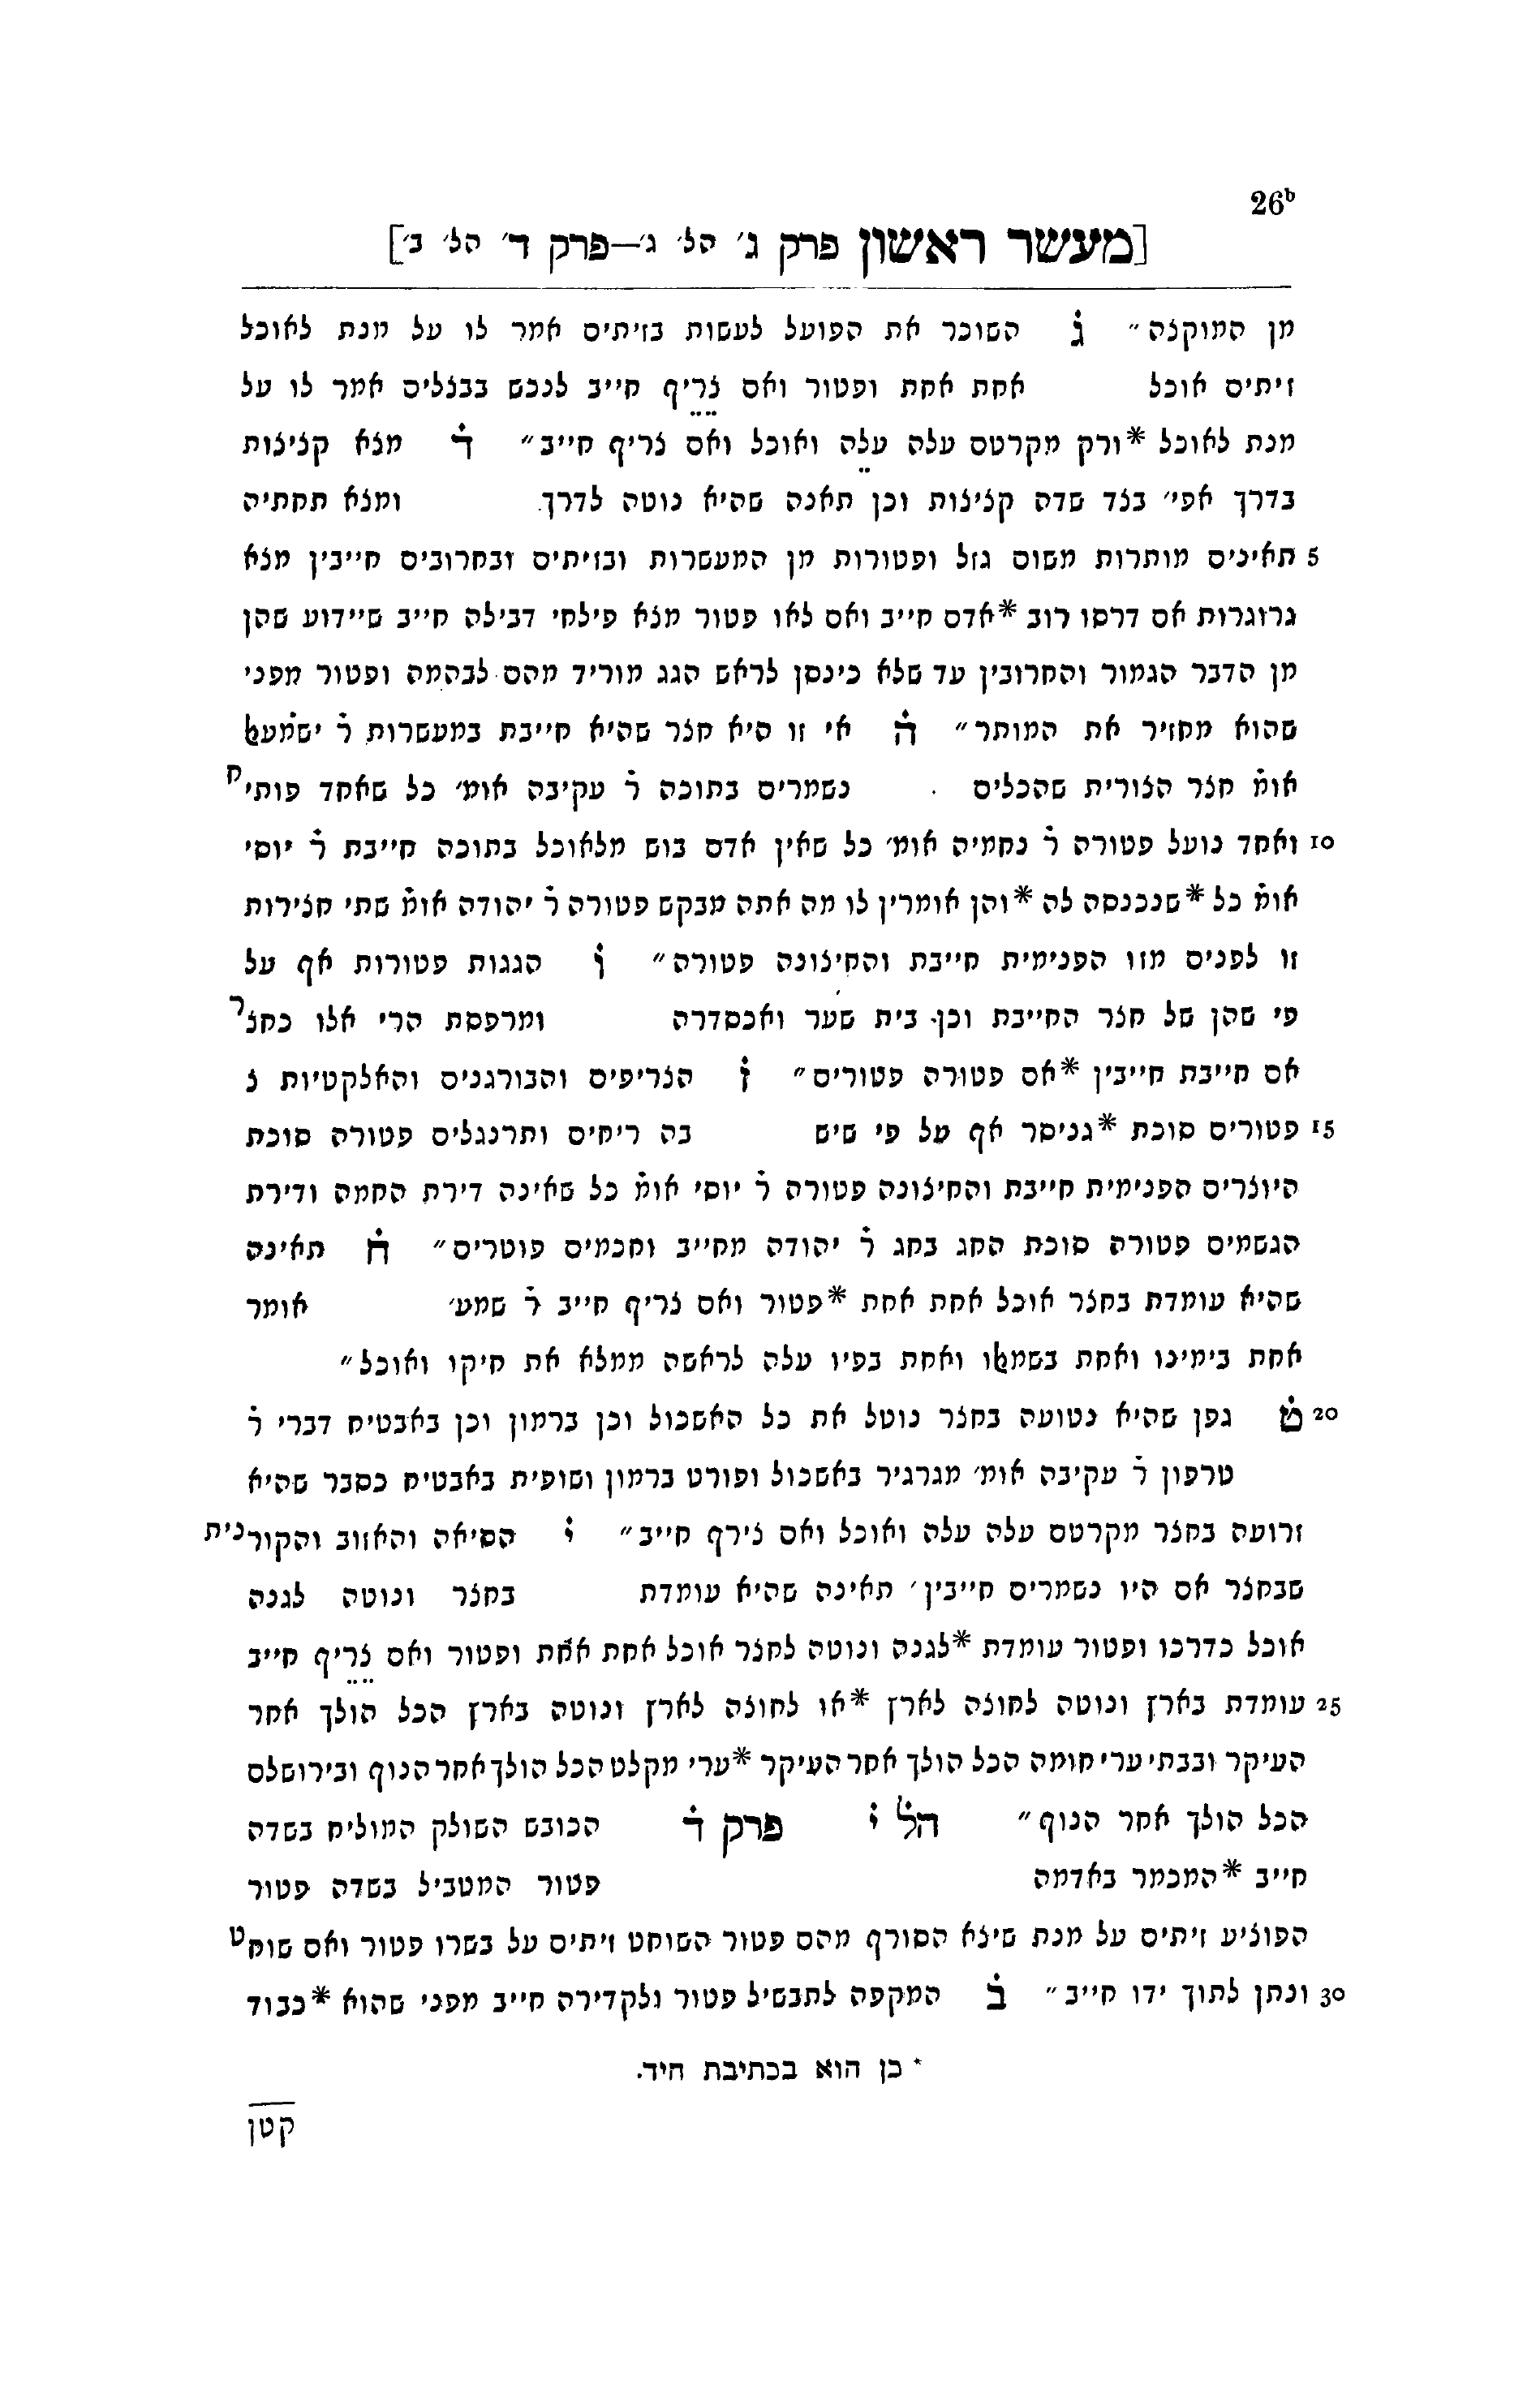 26b
[מעשר ראשון פרק ג׳ הל׳ ג׳—פרק ד׳ הל׳ ב׳]
מן המוקצה״ ג השוכר את הפועל לעשות בזיתים אמר לו על מנת לאוכל
זיתים אוכל אחת אחת ופטור ואם צריף חייב לנכש בבצלים אמר לו על
מנת לאוכל *ורק מקרטם עלה עלה ואוכל ואם צריף חייב״ ד מצא קציצות
בדרך אפי׳ בצד שדה קציצות וכן תאנה שהיא נוטה לדרך ומצא תחתיה
5 תאינים מותרות משום גזל ופטורות מן המעשרות ובזיתים ובחרובים חייבין מצא
גרוגרות אם דרסו רוב *אדם חייב ואם לאו פטור מצא פילחי דבילה חייב שיידוע שהן
מן הדבר הגמור והחרובין עד שלא כינסן לראש הגג מוריד מהם לבהמה ופטור מפני
שהוא מחזיר את המותר״ ה אי זו היא חצר שהיא חייבת במעשרות ר ישמעאל
אומ חצר הצורית שהכלים נשמרים בתוכה ר עקיבה אומ׳ כל שאחד פותיח
10 ואחד נועל פטורה ר נחמיה אומ׳ כל שאין אדם בוש מלאוכל בתוכה חייבת ר יוסי
אומ כל *שנכנסה לה *והן אומרין לו מה אתה מבקש פטורה ר יהודה אומ שתי חצירות
זו לפנים מזו הפנימית חייבת והחיצונה פטורה״ ו הגגות פטורות אף על
פי שהן של חצר החייבת וכן בית שער ואכסדרה ומרפסת הרי אלו כחצר
אם חייבת חייבין *אם פטורה פטורים״ ז הצריפים והבורגנים והאלקטיות צ
15 פטורים סוכת *גניסר אף על פי שיש בה ריחים ותרנגלים פטורה סוכת
היוצרים הפנימית חייבת והחיצונה פטורה ר יוסי אומ כל שאינה דירת החמה ודירת
הגשמים פטורה סוכת החג בחג ר יהודה מחייב וחכמים פוטרים״ ח תאינה
שהיא עומדת בחצר אוכל אחת אחת *פטור ואם צריף חייב ר שמע׳ אומר
אחת בימינו ואחת בשמאלו ואחת בפיו עלה לראשה ממלא את חיקו ואוכל״
20 ט גפן שהיא נטועה בחצר נוטל את כל האשכול וכן ברמון וכן באבטיח דברי ר
טרפון ר עקיבה אומ׳ מגרגיר באשכול ופורט ברמון ושופית באבטיח כסבר שהיא
זרועה בחצר מקרטם עלה עלה ואוכל ואם צירף חייב״ י הסיאה והאזוב והקורנית
שבחצר אם היו נשמרים חייבין׳ תאינה שהיא עומדת בחצר ונוטה לגנה
אוכל כדרכו ופטור עומדת *לגנה ונוטה לחצר אוכל אחת אחת ופטור ואם צריף חייב
25 עומדת בארץ ונוטה לחוצה לארץ *או לחוצה לארץ ונוטה בארץ הכל הולך אחר
העיקר ובבתי ערי חומה הכל הולך אחר העיקר *ערי מקלט הכל הולך אחר הנוף ובירושלם
הכל הולך אחר הנוף״ הל י פרק ד הכובש השולק המוליח בשדה
חייב *המכמר באדמה פטור המטביל בשדה פטור
הפוציע זיתים על מנת שיצא הסורף מהם פטור השוחט זיתים על בשרו פטור ואם שוחט
30 ונתן לתוך ידו חייב״ ב המקפה לתבשיל פטור ולקדירה חייב מפני שהוא *כבוד
* כן הוא בכתיבת חיד.
קטן